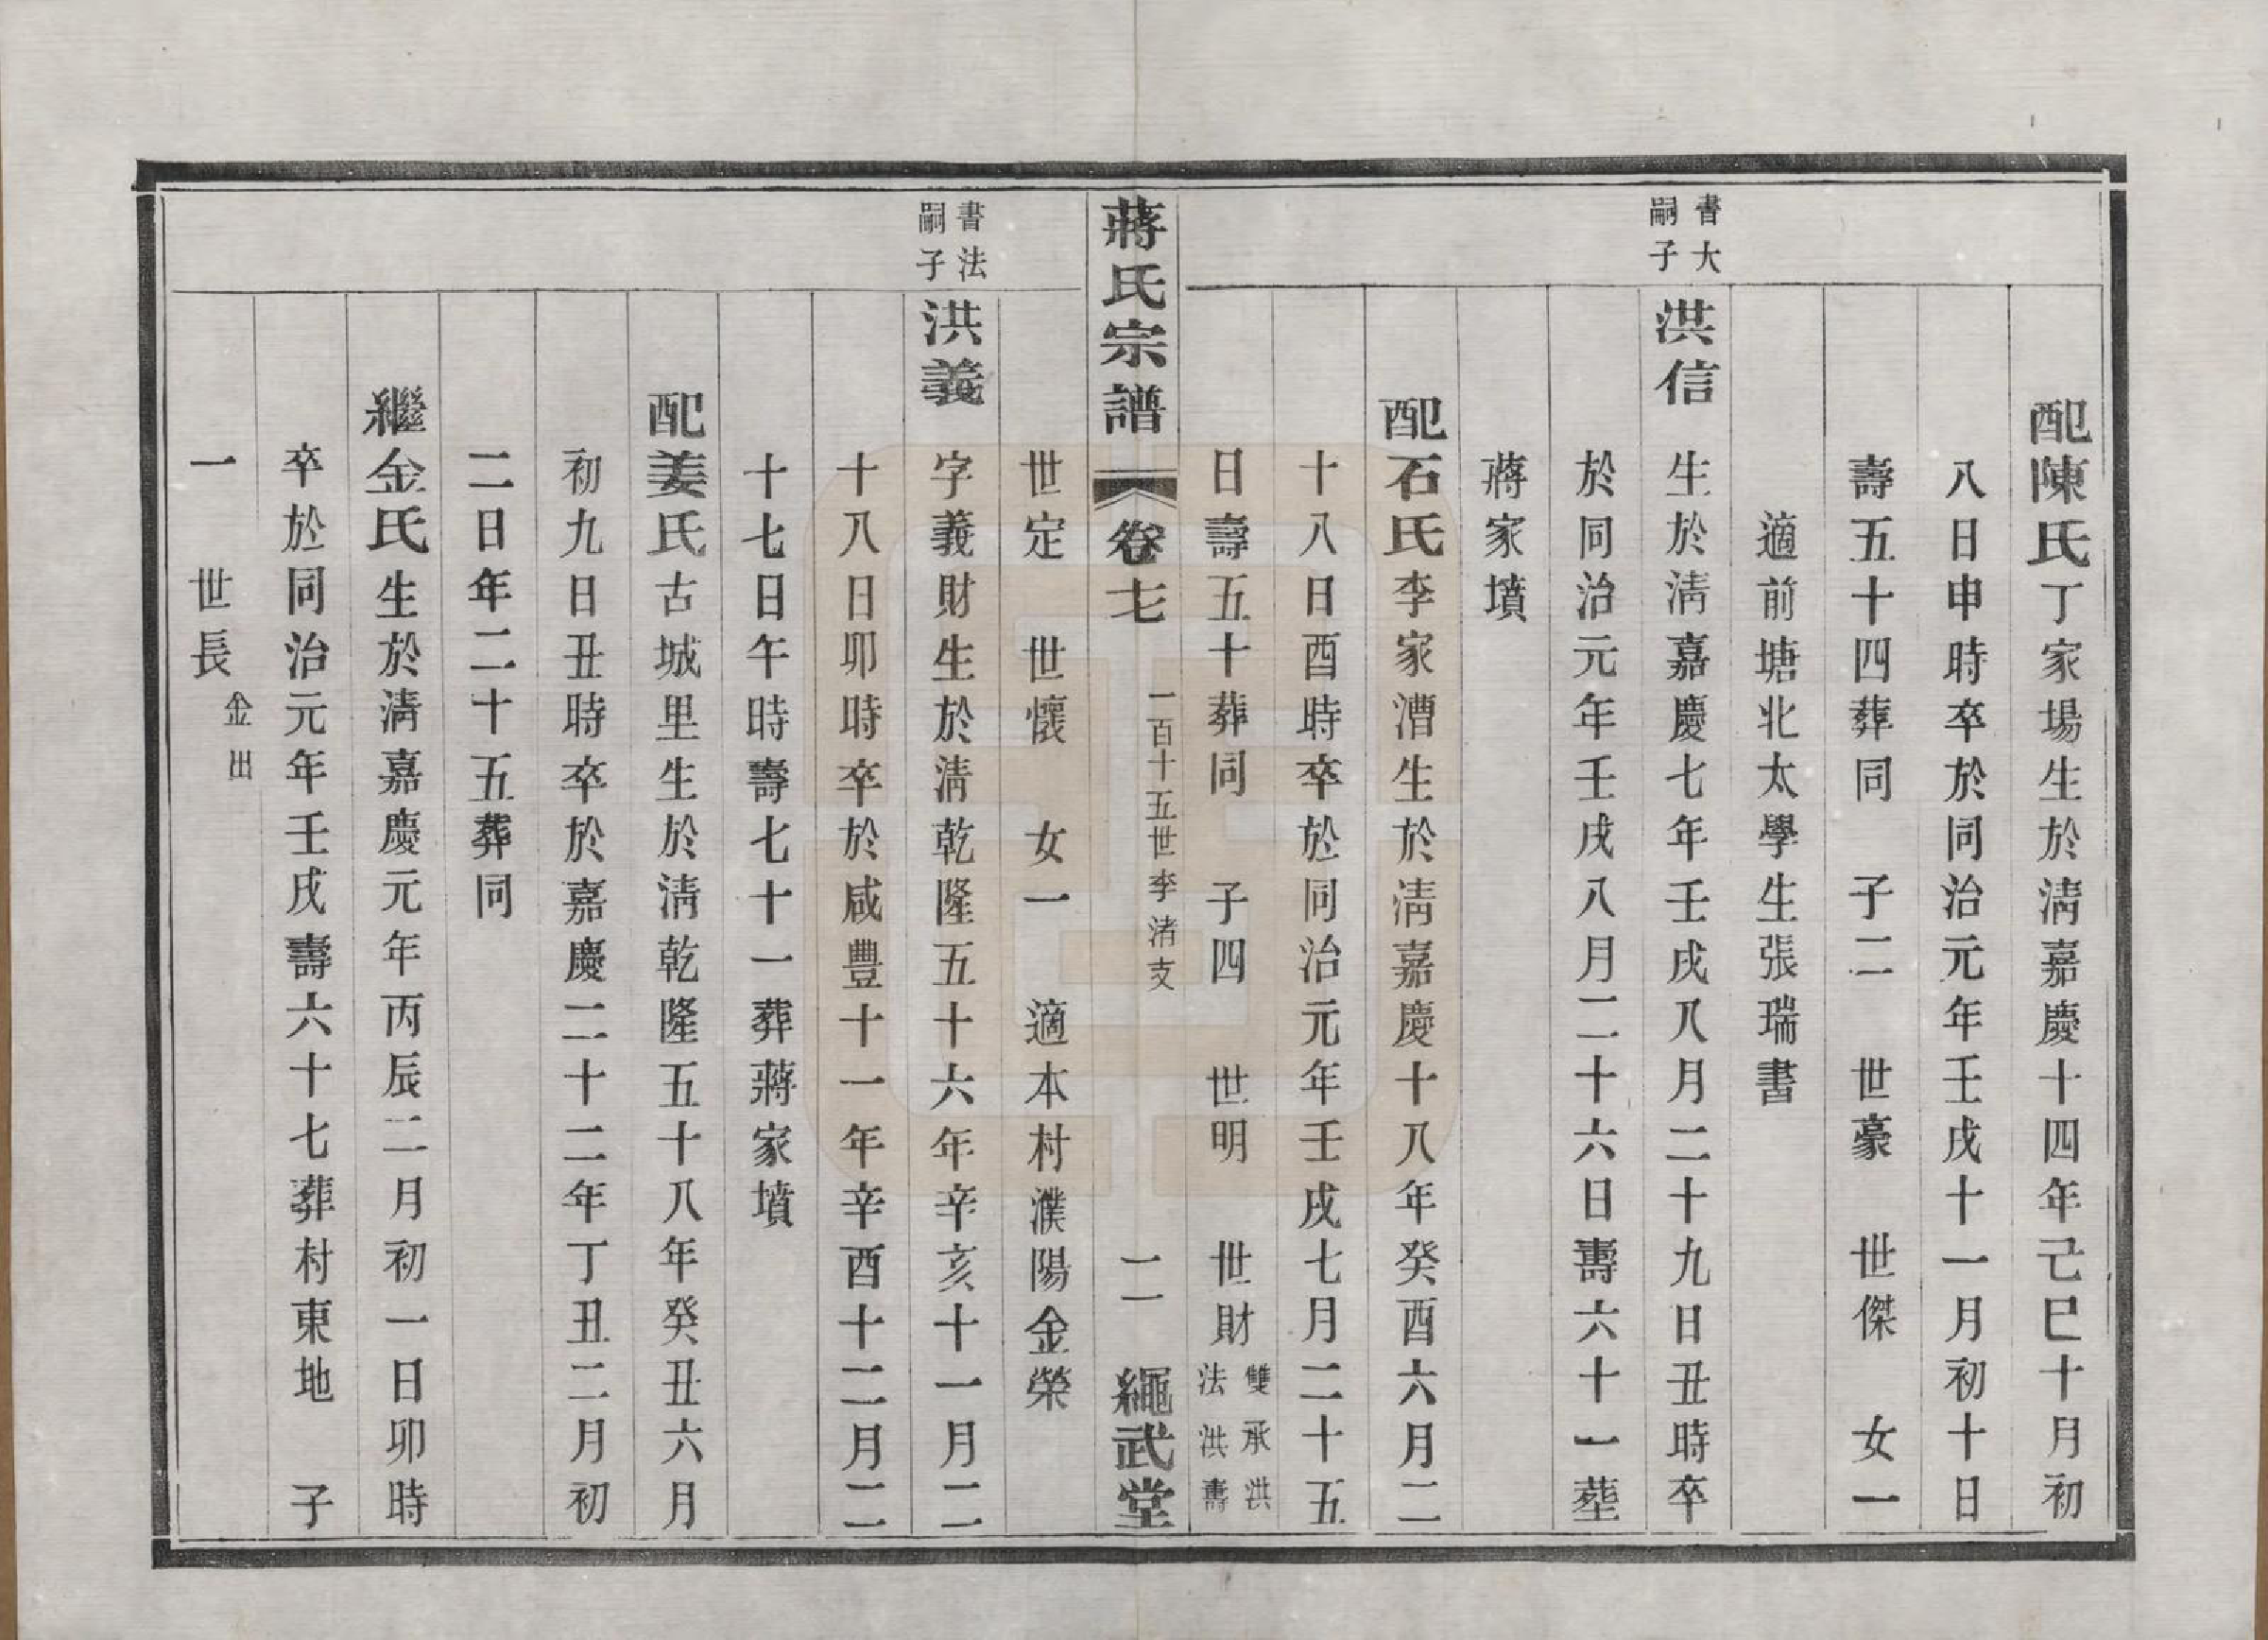 配陳氏丁家場生於淸嘉慶十四年己巳十月初
八日申時卒於同治元年壬戌十一月初十日
壽五十四葬同　子二　世豪　世傑　女一
適前塘北太學生張瑞書
書大嗣子　洪信　生於淸嘉慶七年壬戌八月二十九日丑時卒
於同治元年壬戌八月二十六日壽六十一葬
蔣家墳
配石氏李家漕生於淸嘉慶十八年癸酉六月二
十八日酉時卒於同治元年壬戌七月二十五
日壽五十葬同　子四　世明　世財雙承洪法洪壽
蔣氏宗譜　卷七　一百十五世李渚支　二　繩武堂
世定　世懷　女一　適本村濮陽金榮
書法嗣子　洪義　字義財生於淸乾隆五十六年辛亥十一月二
十八日卯時卒於咸豐十一年辛酉十二月二
十七日午時壽七十一葬蔣家墳
配姜氏古城里生於淸乾隆五十八年癸丑六月
初九日丑時卒於嘉慶二十二年丁丑二月初
二日年二十五葬同
繼金氏生於淸嘉慶元年丙辰二月初一日卯時
卒於同治元年壬戌壽六十七葬村東地　子
一　世長金出